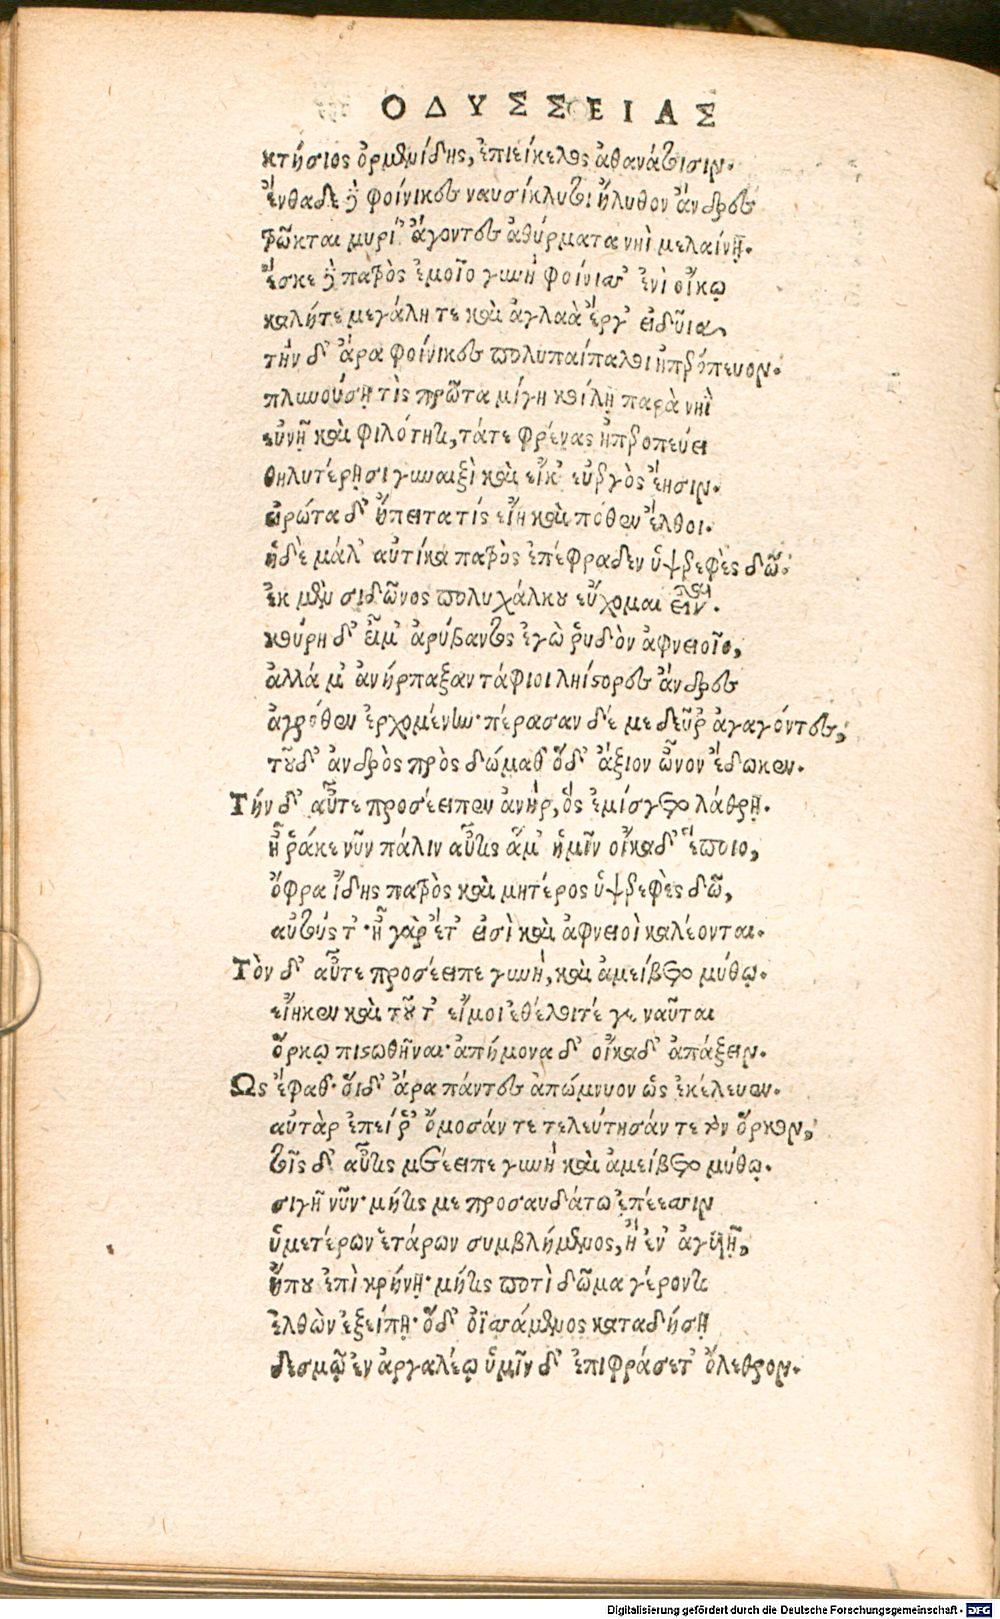 ΟΔΥΣΣΕΙΑΣ
κτήσιος ὀρμενίδης, ἐπιείκελος ἀθανάτοισιν.
ἔνθα δὲ ϗ̀ φοίνικες ναυσίκλυτοι ἤλυθον ἄνδρες
τρῶκται μυρί' ἄγοντες ἀθύρματα νηῒ μελαίνῃ.
ἔσκε ϗ̀ πατρὸς ἐμοῖο γυνὴ φοίνισσ' ἐνὶ οἴκῳ
καλή τε μεγάλη τε καὶ ἀγλαὰ ἔργ' εἰδυῖα,
τὴν δ' ἄρα φοίνικες πολυπαίπαλοι ἠπερόπευον.
πλυνούσῃ τὶς πρῶτα μίγη κοίλῃ παρὰ νηῒ
εὐνῇ καὶ φιλότητι, τάτε φρένας ἠπεροπεύει
θηλυτέρῃσι γυναιξὶ καὶ εἴκ' εὐεργὸς ἔησιν.
εἰρώτα δ' ἤπειτα τίς εἴη καὶ πόθεν ἔλθοι.
ἡ δὲ μάλ' αὐτίκα πατρὸς ἐπέφραδεν ὑψερεφὲς δῶ.
ἐκ μὲν σιδῶνος πολυχάλκου εὔχομαι εἶναι.
κούρη δ' εἴμ' ἀρύβαντος ἐγὼ ῥυδὸν ἀφνειοῖο,
ἀλλά μ' ἀνήρπαξαν τάφιοι ληίστορες ἄνδρες
ἀγρόθεν ἐρχομένην· πέρασαν δέ με δεῦρ' ἀγαγόντες,
τοῦδ' ἀνδρὸς πρὸς δώμαθ' ὅδ' ἄξιον ὦνον ἔδωκεν.
Τήν δ' αὖτε προσέειπεν ἀνὴρ, ὃς ἐμίσγετο λάθρῃ.
ἦ ῥάκε νῦν πάλιν αὖτις ἅμ' ἡμῖν οἴκαδ' ἕποιο,
ὄφρα ἴδῃς πατρὸς καὶ μητέρος ὑψερεφὲς δῶ,
αὐτούς τ'· ἦ γὰρ ἔτ' εἰσὶ καὶ ἀφνειοὶ καλέονται.
Τὸν δ' αὖτε προσέειπε γυνὴ, καὶ ἀμείβετο μύθῳ.
εἴη κεν καὶ τοῦτ' εἴ μοι ἐθέλοιτέ γε ναῦται
ὅρκῳ πιστωθῆναι· ἀπήμονα δ' οἴκαδ' ἀπάξειν.
Ὣς ἔφαθ'· οἵδ' ἄρα πάντες ἀπώμνυον ὡς ἐκέλευεν.
αὐτὰρ ἐπεί ῥ' ὄμοσάν τε τελεύτησάν τε τὸν ὅρκον,
τοῖς δ' αὖτις μετέειπε γυνὴ καὶ ἀμείβετο μύθῳ.
σιγῇ νῦν· μήτις με προσαυδάτω ἐπέεσσιν
ὑμετέρων ἑτάρων συμβλήμενος, ἢ ἐν' ἀγυιῇ,
ἤπου ἐπὶ κρήνῃ· μήτις ποτὶ δῶμα γέροντι
ἐλθὼν ἐξείπῃ· ὅδ' ὀϊσσάμενος καταδήσῃ
δεσμῷ ἐν ἀργαλέῳ ὑμῖν δ' ἐπιφράσετ' ὄλεθρον.
Digitalisierung gefördert durch die Deutsche Forschungsgemeinschaft - DFG